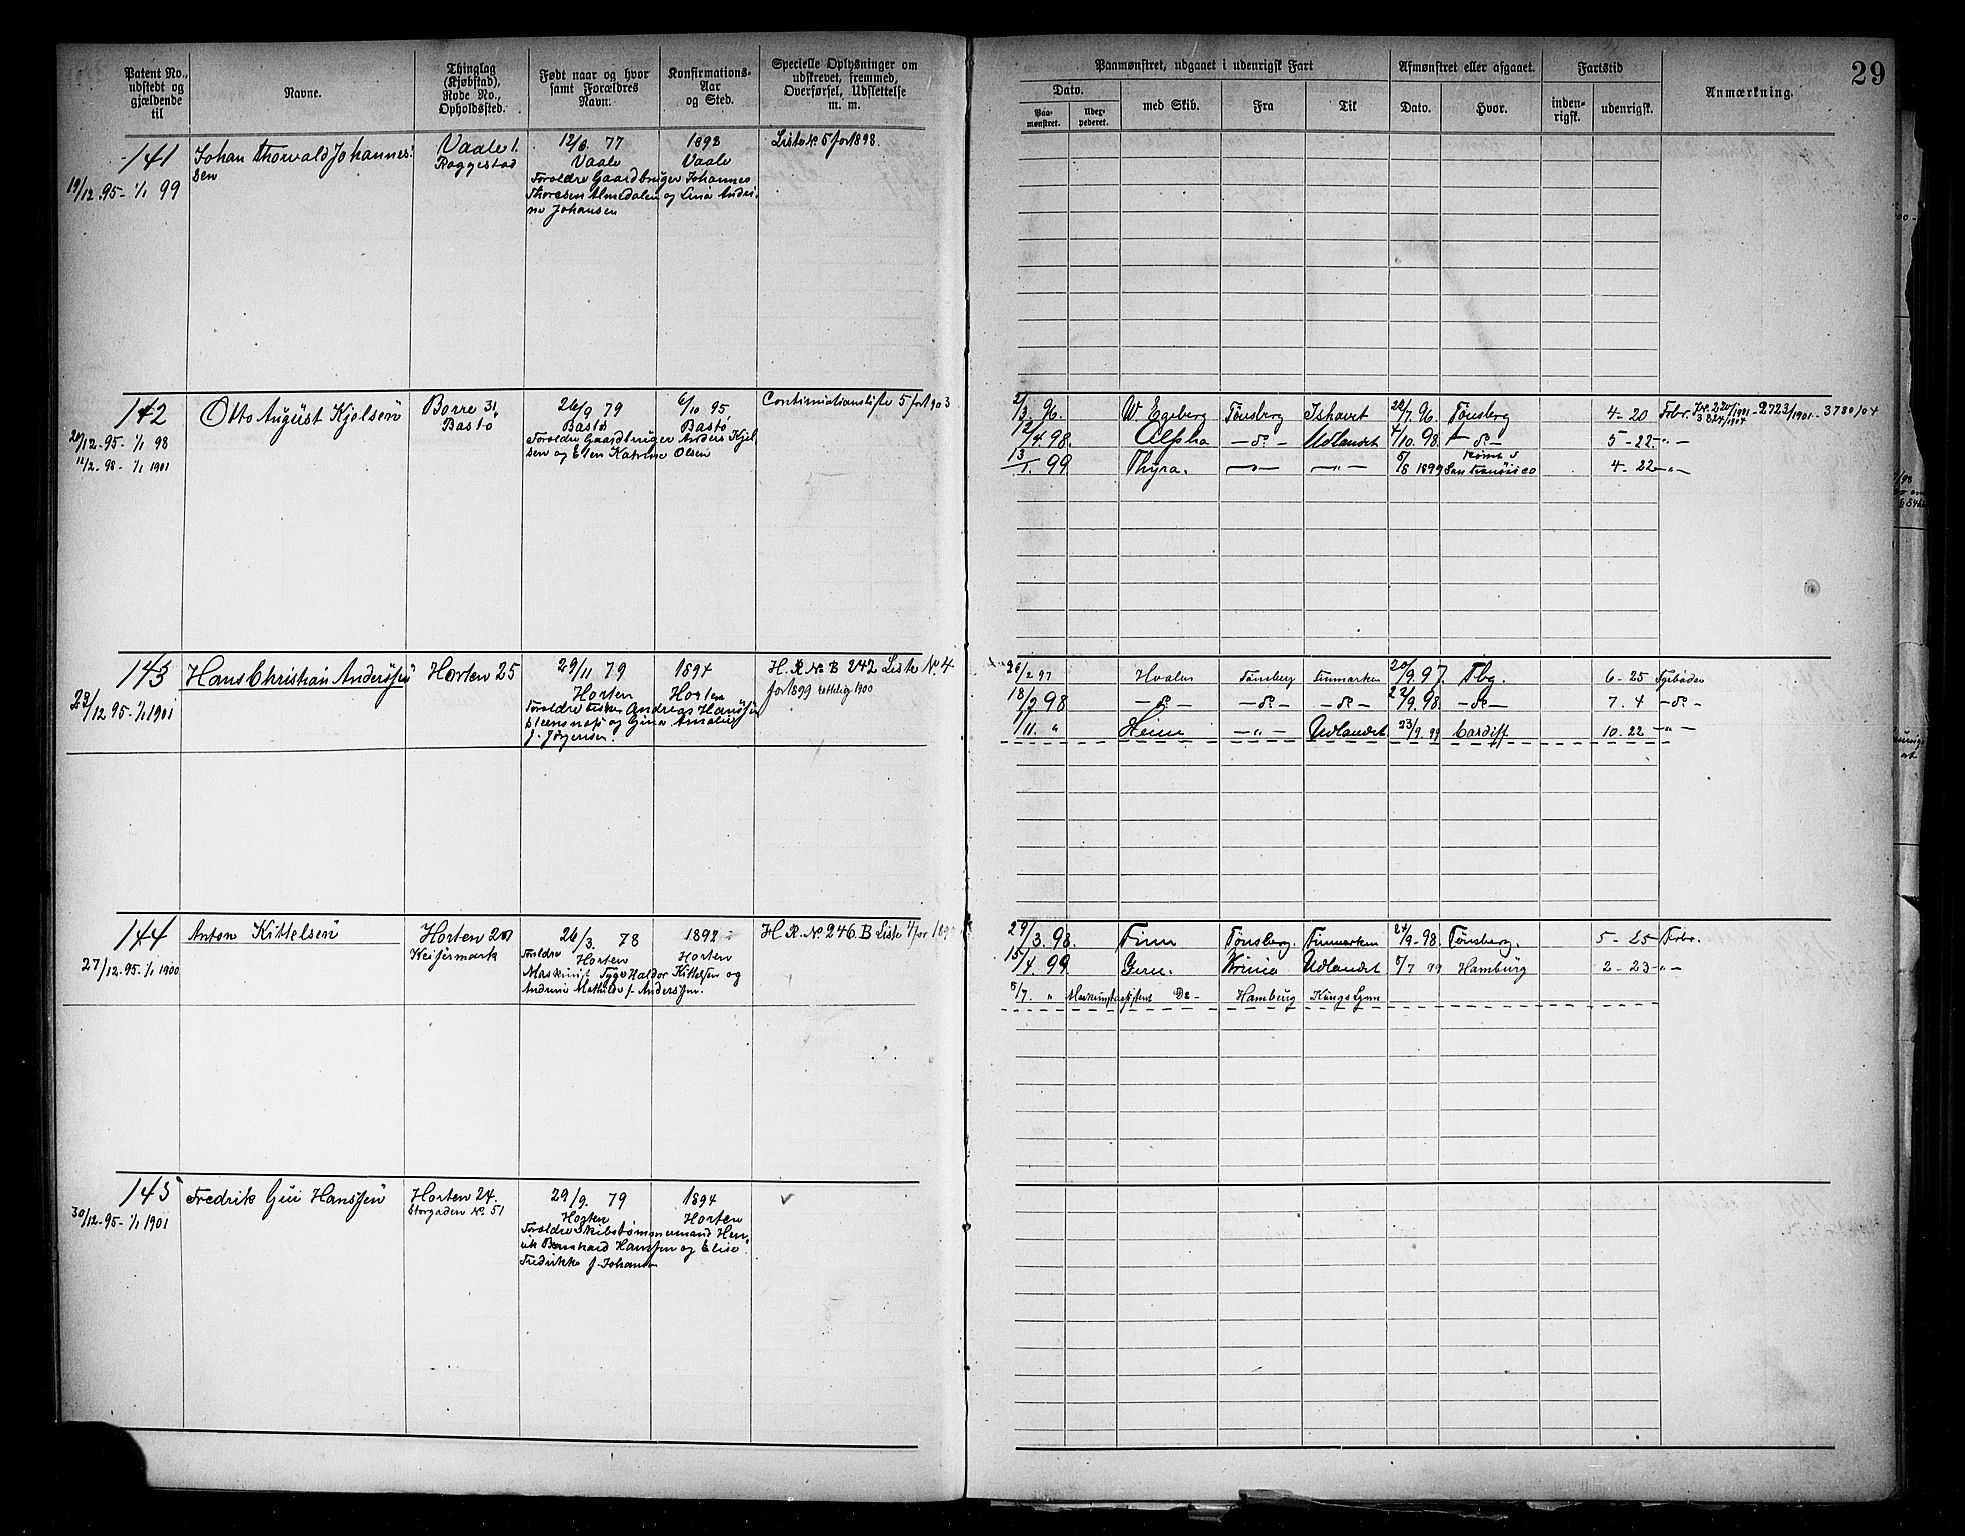 Patent No., udstedt og gjældende til
Navne.
Thinglag (Kjøbstad), Rode No., Opholdssted.
Født naar og hvor samt Forældres Navn.
Konfirmations-Aar og Sted.
Specielle Oplysninger om udskrevet, fremmed, Overførsel, Udslettelse m. m.
Paamønstret, udgaaet i udenrigsk Fart
Afmønstret eller afgaaet.
Fartstid
Anmærkning.
29
Dato.
med Skib.
Fra
Til
Dato.
Hvor.
inden-rigsk.
udenrigsk.
Paa-mønstret.
Uder-pederet.
141
19/12.95 - 1/1 99
Johan Thorvald Johannes-
sen
Vaale 1.
Roggestad
12/6. 77
Vaale
1893
Vaale
Foroldre Gaardbruger Johannes
Thoresen Almedalen og Lina Andri-
ne Johansen
Liste No 5 for 1898.
142
20/12-95- 1/1 98
12/2. 98 - 1/1 1901
Otto August Kjølsen
Borre 31
Bastø
26/9 79
Bastø
6/10 95,
Bastø
Foroldre Gaardbruger Anders Kjøl
sen og Elen Katrine Olsen
Continuationsliste 5 for 1903
2/3. 96. W Egeberg Tønsberg Ishavet 22/7. 96. Tønsberg 4-20 Forbr.
12/4. 98. Alpha - do - Udlandet 4/10. 98. - do - 5-22 - " -
13/1. 99 Thyra. - " - - " - 5/8 1899 San Francisco 4-22 - " -
143
23/12 95 - 1/1 1901
Hans Christian Anderssen
Horten 25
29/11 79
Horten
1894
Horten
Foroldre Fisker Andreas Hanssen
Steensnæs og Gina Amalie
f. Jørgensen.
H. R. No B 242 Liste No. 4
for 1899 rettelig 1900
26/2 97 Hvalen Tønsberg Finmarken 20/9. 97. Tbg. 6-25 Fyrbøder
18/2 98 - do - - do - - do - 22/9. 98. - do - 7. 4 - do -
1/11. " Heim - " - Udlandet 23/9. 99 Cardiff 10-22 - " -
144
27/12.95 - 1/1 1900
Anton Kittelsen
Horten 20
Keisermark
26/3. 78
Horten
1892
Horten
Foroldre
Maskinist Tyge Haldor Kittelsen og
Andrine Mathilde f. Anderssen.
H R. No. 246. B Liste 4 for
29/3. 98. Finn Tønsberg. Finmarken 24/9-98. Tønsberg. 5-25 Forbr.
15/4 99 Udlandet 5/7 99 Hamburg 2-23 - " -
5/7. " Do - Hamburg Kings Lynn
145
30/12-95 - 1/1 1901
Fredrik Gui Hanssen
Horten 24.
Storgaden No. 51
29/9. 79
Horten
1894
Horten
Foroldre Skibstømmermand Hen-
rik Bernhard Hanssen og Elise
Fredrikke f. Johansen